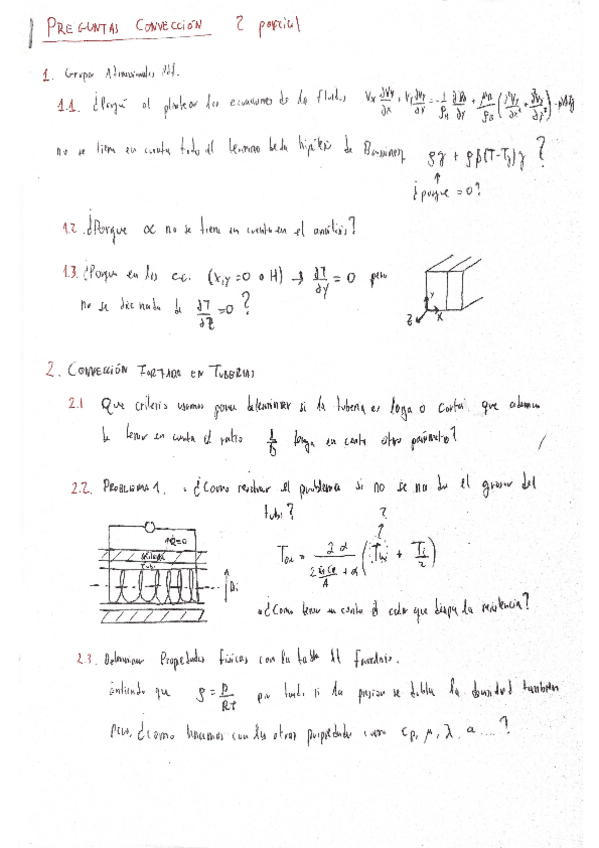 PREGUNTAS CONVECCIÓN 2 parcial
1. Grupos Adimensionales
1.1. ¿Porqué al plantear las ecuaciones de la fluidos Vx ∂Vy/∂x + Vy ∂Vy/∂y = -1/ρ0 ∂P/∂y + μ0/ρ0 (∂²Vy/∂x² + ∂²Vy/∂y²)
no se tiene en cuenta todo el termino hipótesis de Boussinesq ρg + ρβ(T-T0)g ?
¿porque = 0?
1.2. ¿Porque α no se tiene en cuenta en el análisis?
1.3. ¿Porque en las c.c. (x, y=0 o H) → ∂T/∂y = 0 pero
no se dice nada de ∂T/∂z = 0 ?
Y
Z X
2. CONVECCIÓN FORZADA EN TUBERIAS
2.1 Que criterio usamos para determinar si la tuberia es larga o corta? que ademas
de tener en cuenta el ratio L/D tenga en cuenta otro parámetro?
2.2. PROBLEMA 1. • ¿Como resolver el problema si no se da el grosor del
tubo?
?
Di
• ¿Como tener en cuenta el calor que disipa la resistencia?
2.3. Determinar Propiedades físicas con la tabla del
Entiendo que ρ = P/RT por tanto si la presion se dobla la densidad tambien
Pero, ¿como hacemos con las otras propiedades como cp, μ, λ, a ....?